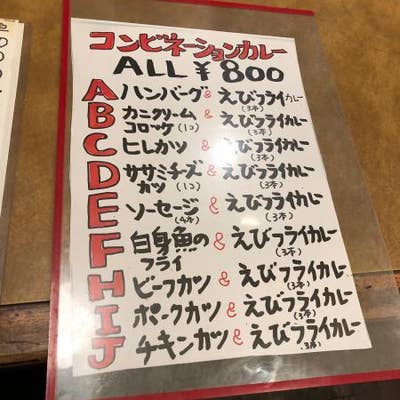 コンビネーションカレー
ALL ¥800
A ハンバーグ & えびフライカレー
(3本)
B カニクリーム & えびフライカレー
コロッケ(1コ) (3本)
C ヒレカツ & えびフライカレー
(3本)
D ササミチーズ & えびフライカレー
カツ (1コ) (3本)
E ソーセージ & えびフライカレー
(4本) (3本)
F 白身魚の & えびフライカレー
フライ (3本)
H ビーフカツ & えびフライカレー
(3本)
I ポークカツ & えびフライカレー
(3本)
J チキンカツ & えびフライカレー
(3本)